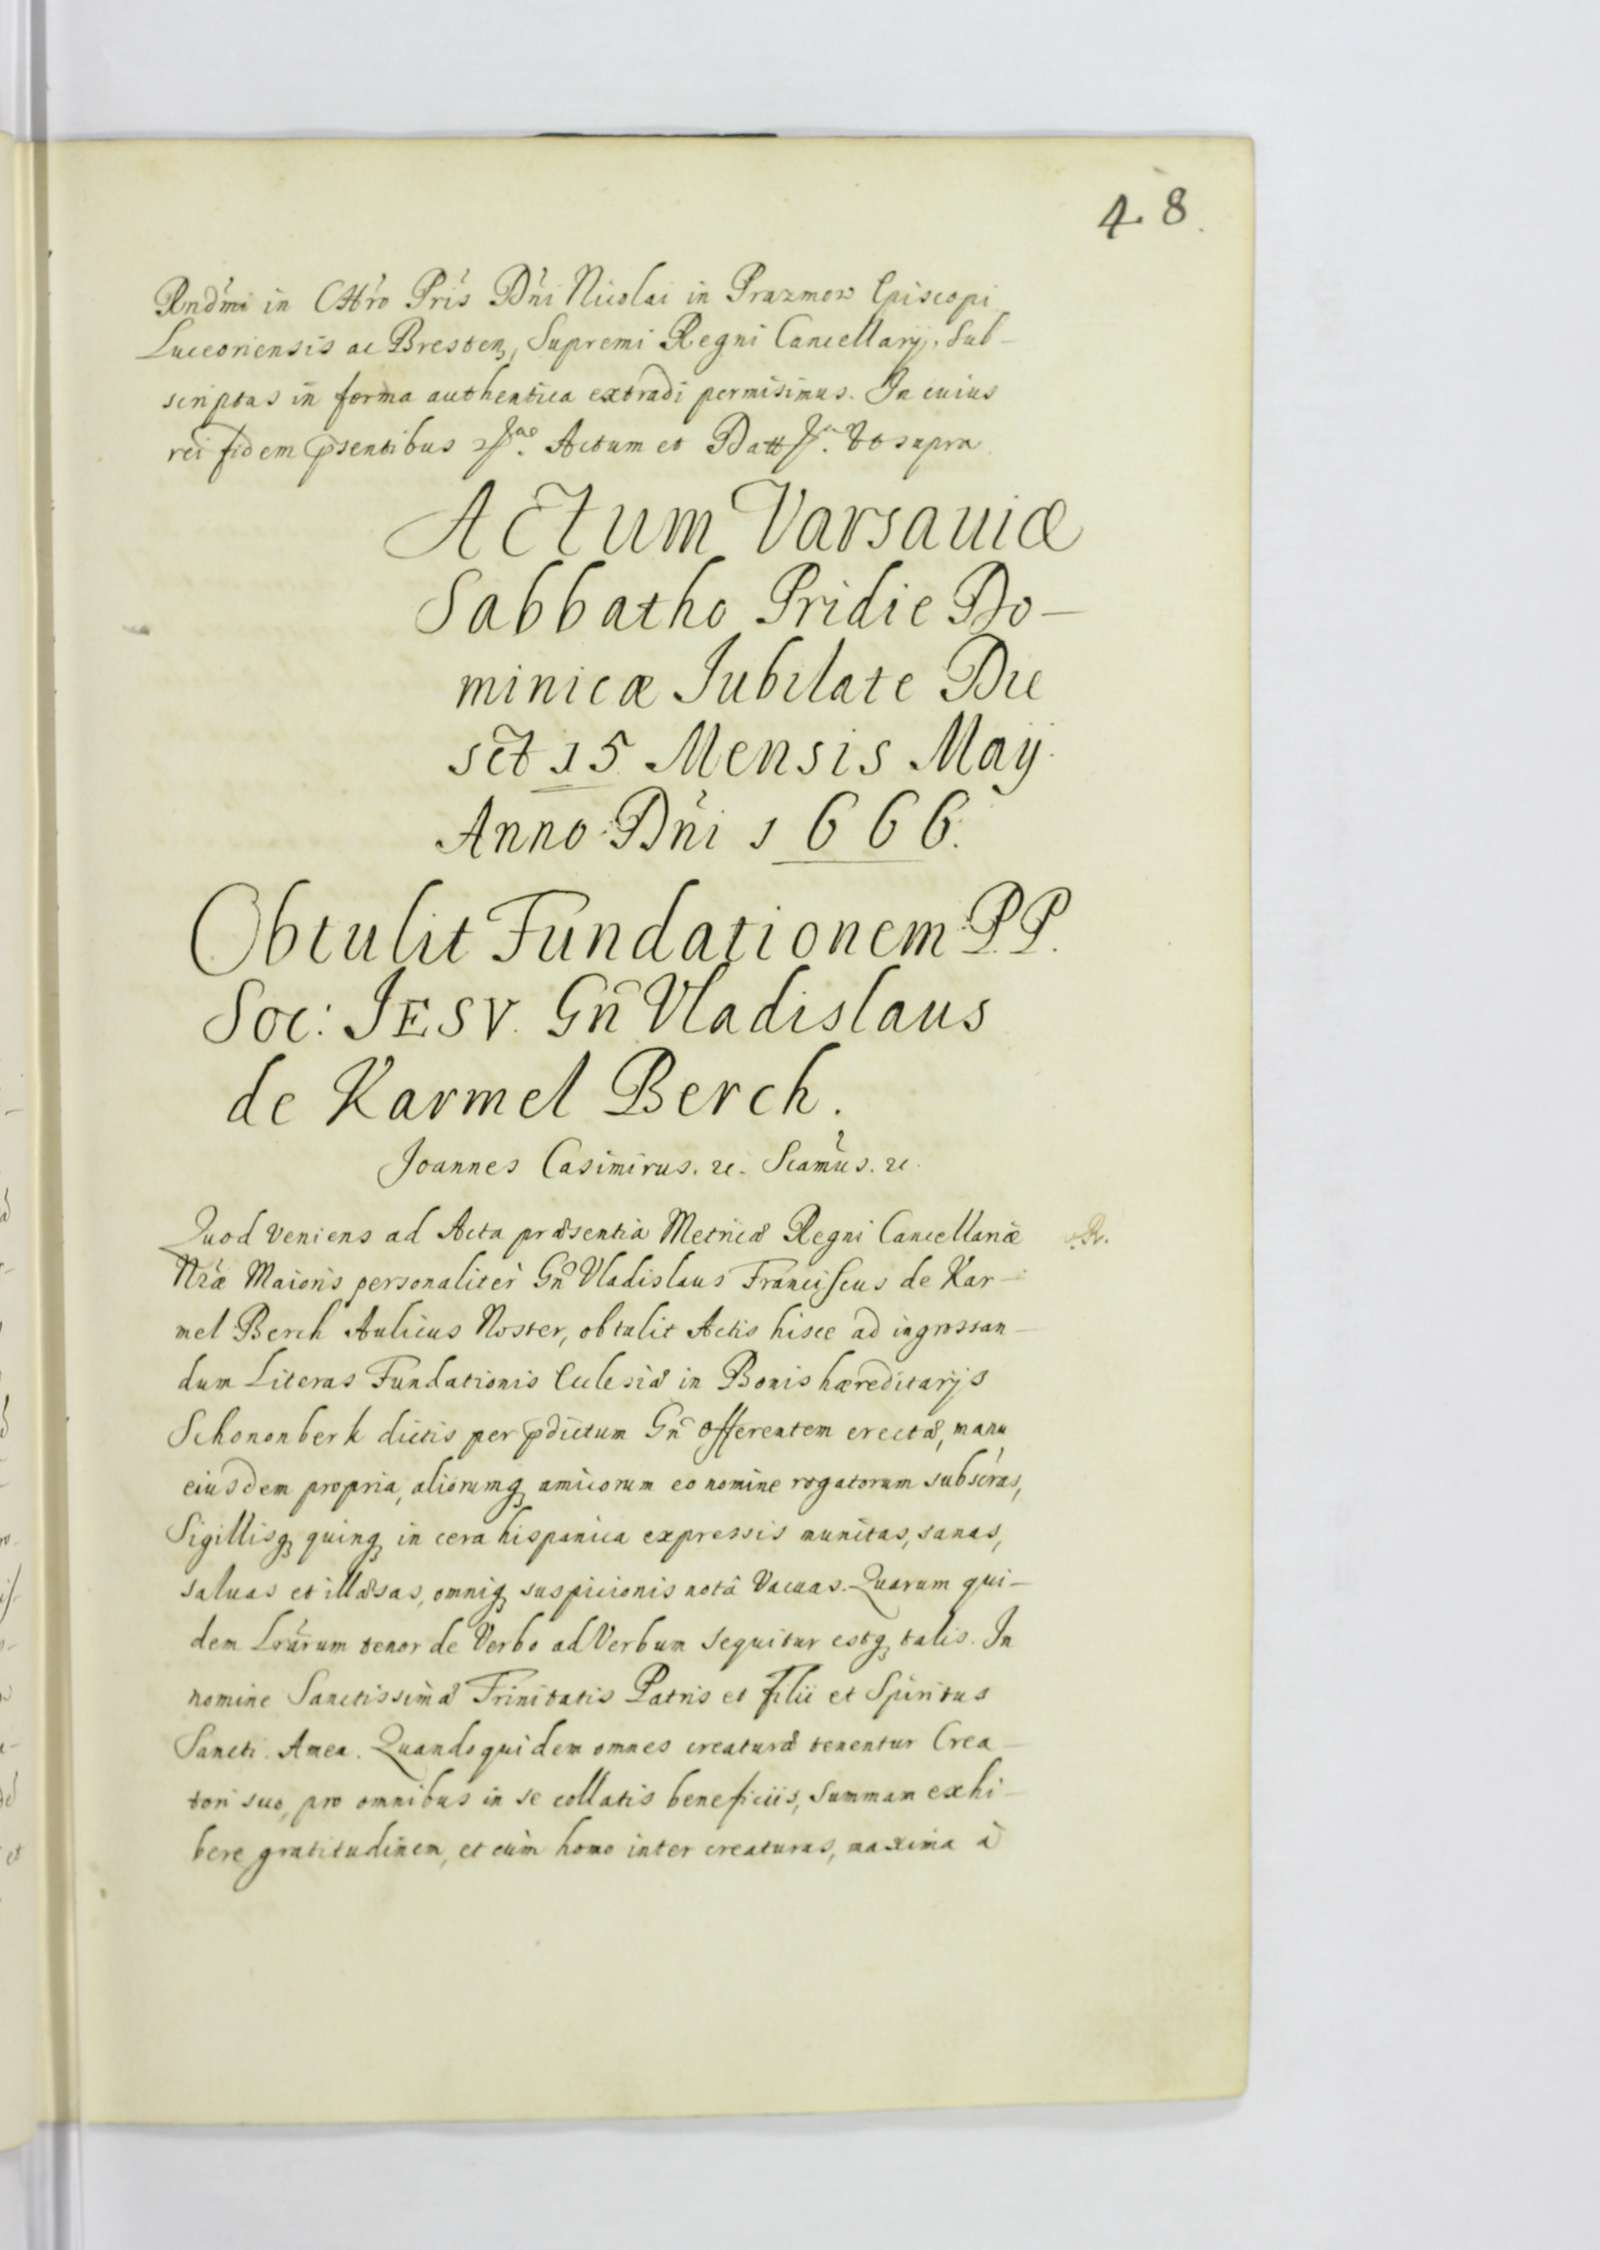 48
Rndmi in Chro Pris Dni Nicolai in Prazmow Episcopi
Luceoriensis ac Bresten, Supremi Regni Cancellarij, sub-
scriptas in forma authentica extradi permisimus. In cuius
rei fidem psentibus Actum et Datt Vt supra
Actum Varsauiæ
Sabbatho Pridie Do-
minicæ Jubilate Die
sct 15 Mensis Maij
Anno Dni 1666.
Obtulit Fundationem P.P.
Soc: JESV. Gn Vladislaus
de Karmel Berch.
Joannes Casimirus. &c. Scamus. &c.
Quod veniens ad Acta præsentia Metricæ Regni Cancellariæ
R.
Nræ Maioris personaliter Gn Vladislaus Franciscus de Kar-
mel Berch Aulicus Noster, obtulit Actis hisce ad ingrossan-
dum Literas Fundationis Ecclesiæ in Bonis hæreditarijs
Schononberk dictis per pdictum Gn offerentem erectæ, manu
eiusdem propria, aliorumq amicorum eo nomine rogatorum subscras,
Sigillisq quinq in cera hispanica expressis munitas, sanas,
saluas et illæsas, omniq suspicionis notâ vacuas. Quarum qui-
dem Lrarum tenor de Verbo ad Verbum sequitur estq talis. In
nomine Sanctissimæ Trinitatis Patris et Filii et Spiritus
Sancti. Amen. Quandoquidem omnes creaturæ tenentur Crea-
tori suo, pro omnibus in se collatis beneficiis, summam exhi-
bere gratitudinem, et cùm homo inter creaturas, maxima à